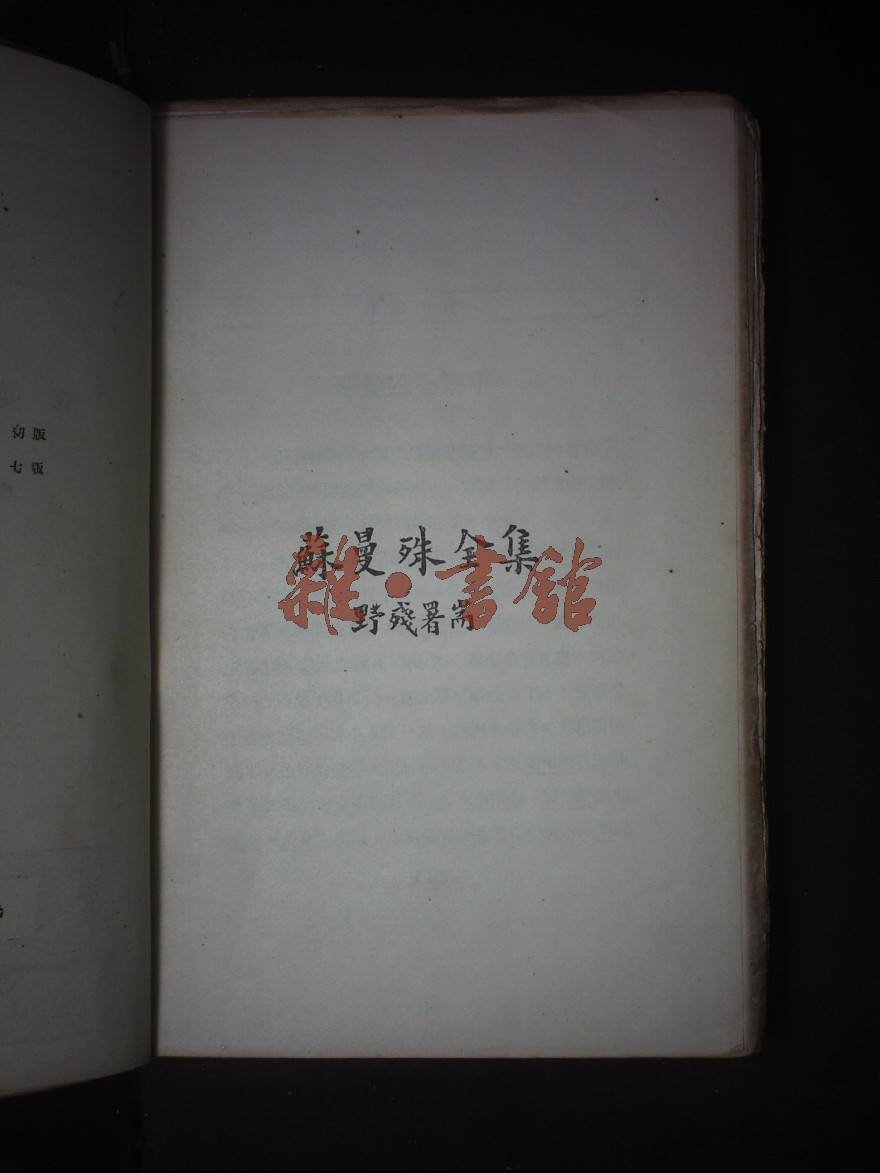 初版
七版
蘇曼殊全集
野殘署耑
雜·書館